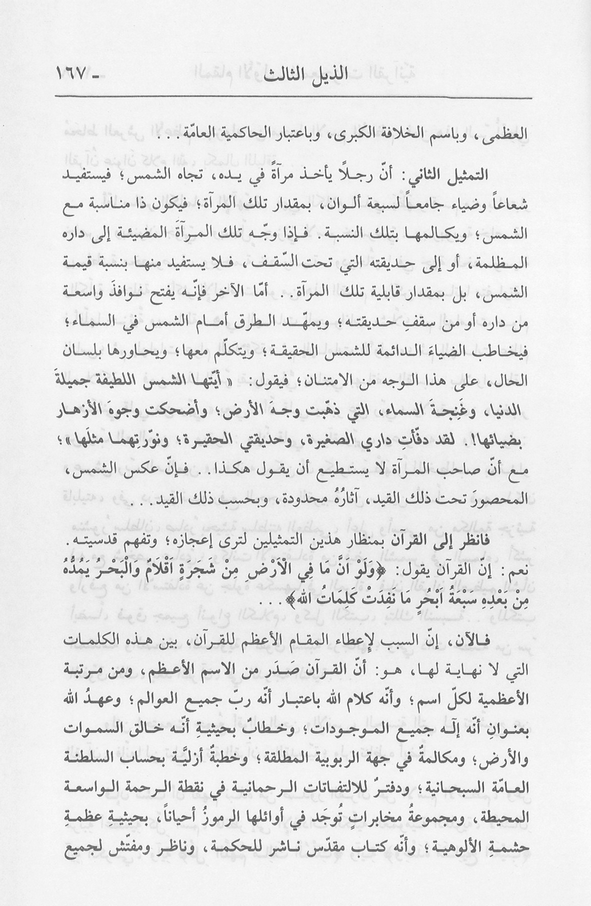 الذيل الثالث - ١٦٧
العظمى، وباسم الخلافة الكبرى، وباعتبار الحاكمية العامّة...
التمثيل الثاني: أنّ رجلاً يأخذ مرآةً في يده، تجاه الشمس؛ فيستفيد
شعاعاً وضياء جامعاً لسبعة ألوان، بمقدار تلك المرآة؛ فيكون ذا مناسبة مع
الشمس؛ ويكالمها بتلك النسبة. فإذا وجّه تلك المرآةَ المضيئة إلى داره
المظلمة، أو إلى حديقته التي تحت السّقف، فلا يستفيد منها بنسبة قيمة
الشمس، بل بمقدار قابلية تلك المرآة.. أمّا الآخر فإنّه يفتح نوافذَ واسعة
من داره أو من سقف حديقته؛ ويمهّد الطرق أمام الشمس في السماء؛
فيخاطب الضياءَ الدائمة للشمس الحقيقة؛ ويتكلّم معها؛ ويحاورها بلسان
الحال، على هذا الوجه من الامتنان؛ فيقول: «أيّتها الشمس اللطيفة جميلةَ
الدنيا، وغَنِجةَ السماء، التي ذهّبت وجهَ الأرض؛ وأضحكت وجوهَ الأزهار
بضيائها!. لقد دفّأتِ داري الصغيرة، وحديقتي الحقيرة؛ ونوّرتِهما مثلَها»؛
مع أنّ صاحب المرآة لا يستطيع أن يقول هكذا.. فإنّ عكس الشمس،
المحصورَ تحت ذلك القيد، آثارُهُ محدودة، وبحسب ذلك القيد...
فانظر إلى القرآن بمنظار هذين التمثيلين لترى إعجازه؛ وتفهم قدسيته.
نعم: إنّ القرآن يقول: ﴿وَلَوْ اَنَّ مَا فِي الْاَرْضِ مِنْ شَجَرَةٍ اَقْلَامٌ وَالْبَحْرُ يَمُدُّهُ
مِنْ بَعْدِهِ سَبْعَةُ اَبْحُرٍ مَا نَفِدَتْ كَلِمَاتُ الله﴾...
فالآن، إنّ السبب لإعطاء المقام الأعظم للقرآن، بين هذه الكلمات
التي لا نهاية لها، هو: أنّ القرآن صَدَر من الاسم الأعظم، ومن مرتبة
الأعظمية لكلّ اسم؛ وأنّه كلام الله باعتبار أنّه ربّ جميع العوالم؛ وعهدُ الله
بعنوان أنّه إلَه جميع الموجودات؛ وخطابٌ بحيثيةِ أنّه خالق السموات
والأرض؛ ومكالمةٌ في جهة الربوبية المطلقة؛ وخطبةٌ أزليَّة بحساب السلطنة
العامّة السبحانية؛ ودفترٌ للالتفاتات الرحمانية في نقطة الرحمة الواسعة
المحيطة، ومجموعةُ مخابراتٍ تُوجَد في أوائلها الرموزُ أحياناً، بحيثيةِ عظمةِ
حشمةِ الألوهية؛ وأنّه كتاب مقدّس ناشر للحكمة، وناظر ومفتّش لجميع